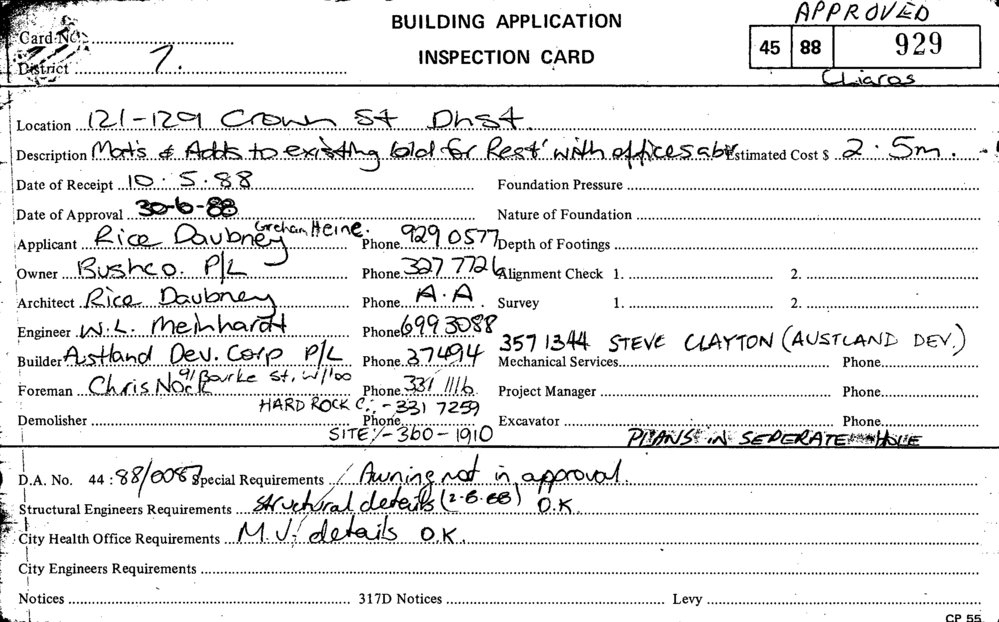 BUILDING APPLICATION
APPROVED
Card No.
INSPECTION CARD
45 88 929
District 7.
Location 121-129 Crown St Dhst.
Description & Adds to existing for Rest' with offices abv Estimated Cost $ 2.5m.
Date of Receipt 10.5.88 Foundation Pressure
Date of Approval 30-6-88 Nature of Foundation
Applicant Rice Daubney Greham Heine. Phone 929 0577 Depth of Footings
Owner Bushco. P/L Phone 327 7726 Alignment Check 1. 2.
Architect Rice Daubney Phone A.A. Survey 1. 2.
Engineer W.L. Meinhardt Phone 699 3088 357 1344 STEVE CLAYTON (AUSTLAND DEV.)
Builder Austland Dev. Corp P/L Phone 37494 Mechanical Services Phone
91 Bourke St, W/'oo
Foreman Chris Nock Phone 331 1116 Project Manager Phone
HARD ROCK C. :- 331 7259
Demolisher Phone Excavator Phone
SITE:- 360-1910 PLANS IN SEPERATE
D.A. No. 44 : 88/0087 Special Requirements Awning not in approval.
Structural Engineers Requirements Structural details (2-8-88) O.K.
City Health Office Requirements M.V. details O.K.
City Engineers Requirements
Notices 317D Notices Levy
CP 55